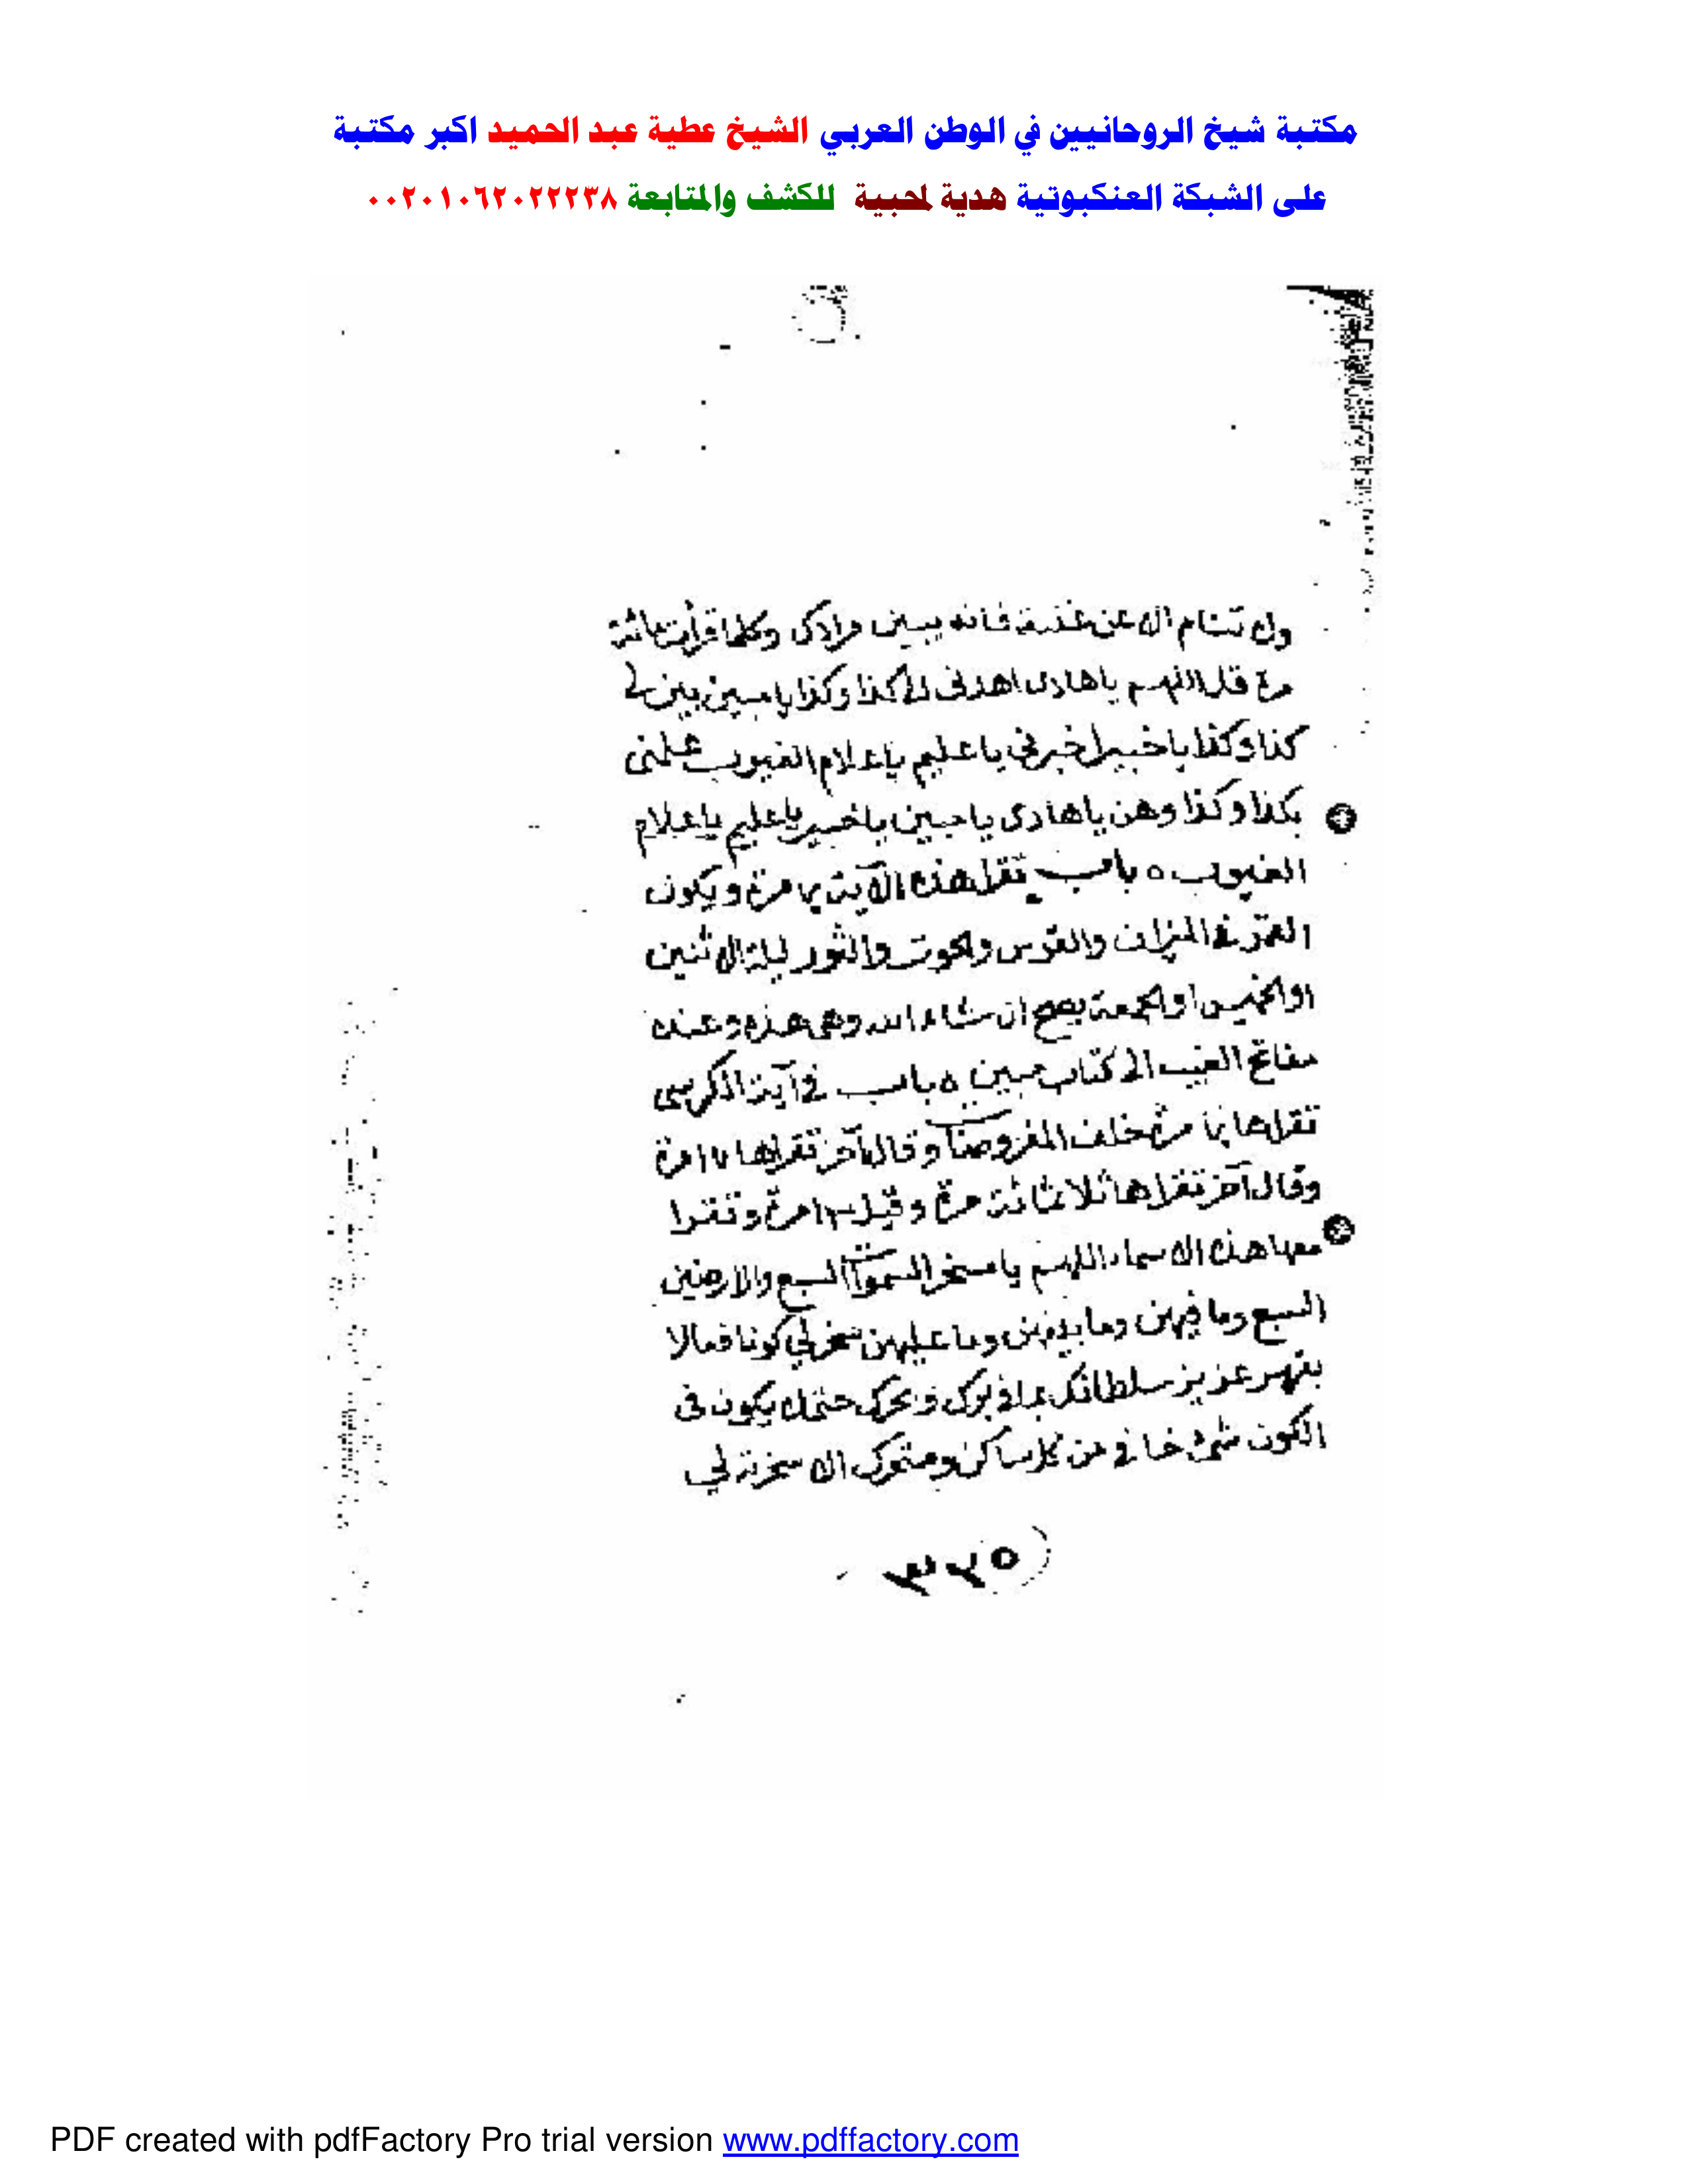 مكتبة شيخ الروحانيين في الوطن العربي الشيخ عطية عبد الحميد اكبر مكتبة
على الشبكة العنكبوتية هدية لمحبية للكشف والمتابعة ٠٠٢٠١٠٦٢٠٢٢٢٣٨
ولا تنام الا عن غلبة فانه يبين مرادك وكلما قرأت مائة
مرة قل اللهم يا هادى اهدنى الى كذا وكذا يا مبين بين لى
كذا وكذا يا خبير اخبرنى يا عليم يا علام الغيوب علمنى
بكذا وكذا وهن يا هادى يا مبين يا خبير يا عليم يا علام
الغيوب ه باب تقرا هذه الآية مرة ويكون
القمر فى الميزان والقوس والحوت والثور ليلة الاثنين
او الخميس او الجمعة يصح ان شاء الله وهى هذه وعنده
مفاتح الغيب الى كتاب مبين ه باب فى آية الكرسى
تقراها مرة خلف المفروضات وقال آخر تقراها مرة
وقال آخر تقراها ثلاثمائة مرة وقيل مرة وتقرا
معها هذه الاسماء اللهم يا مسخر السموات السبع والارضين
السبع وما فيهن وما بينهن وما عليهن سخر لى كونا فعالا
بقهر عزيز سلطانك حتى لا يكون فى
الكون شئ خافى من كل ساكن ومتحرك الا سخرته لي
PDF created with pdfFactory Pro trial version www.pdffactory.com